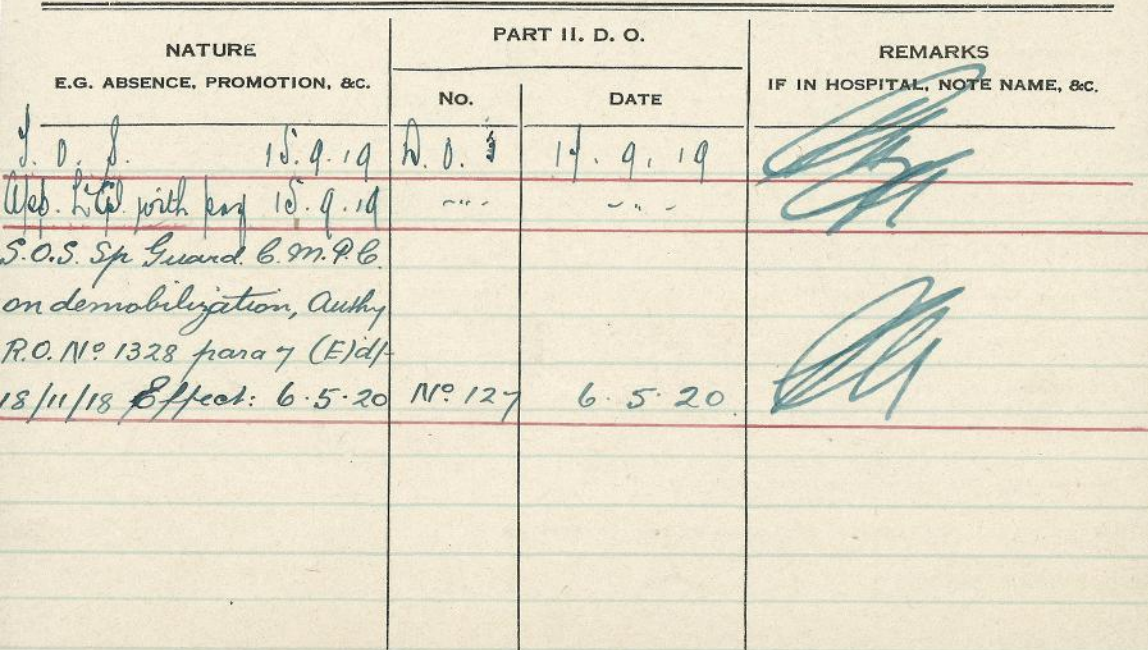 NATURE
E.G. ABSENCE, PROMOTION, &C.
PART II. D. O.
No.
DATE
REMARKS
IF IN HOSPITAL, NOTE NAME, &C.
T. O. S. 15.9.19 D. O. 9.19
with pay 15.9.19 -"- -"-
S.O.S. Sp Guard. C.M.P.C.
on demobilization, Authy
R.O. Nº 1328 para 7 (E) d/-
18/11/18 Effect: 6.5.20 Nº 127 6.5.20